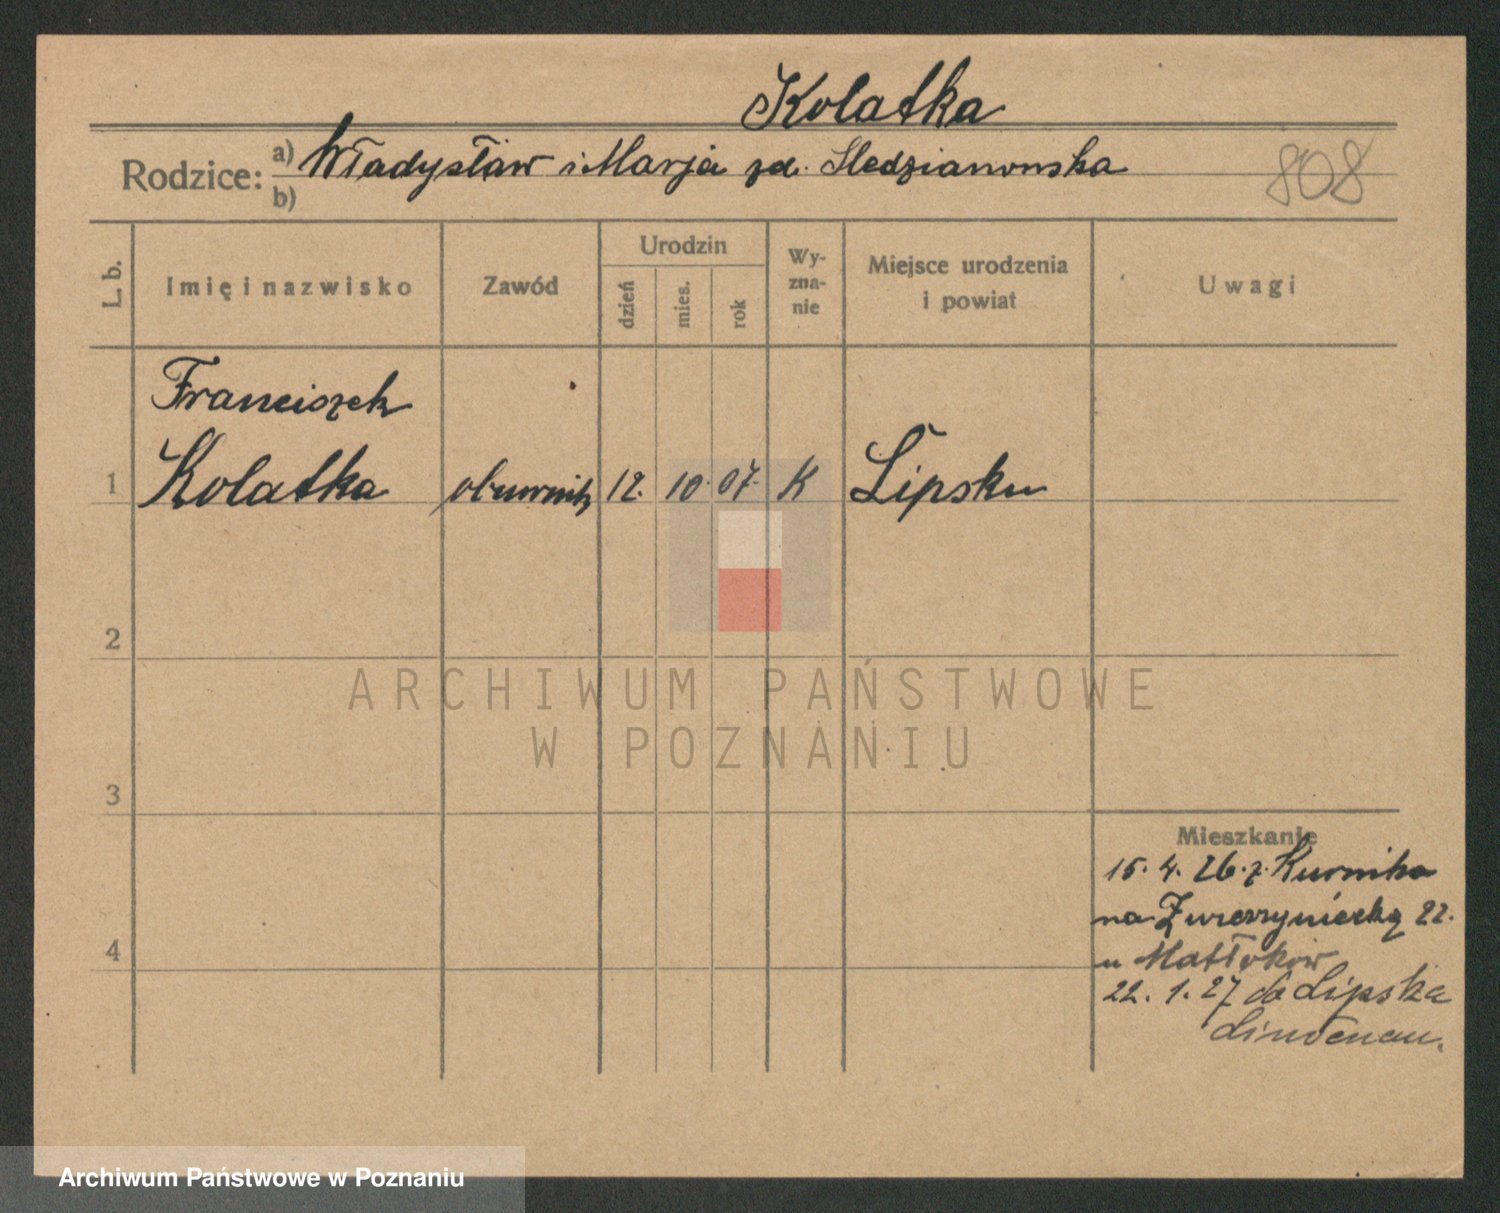 Kolatka
Rodzice: a) Władysław i Marja zd. Sledzianowska
b)
808
L. b.
Imię i nazwisko
Zawód
Urodzin
dzień
mies.
rok
Wy-
zna-
nie
Miejsce urodzenia
i powiat
Uwagi
Franciszek
1 Kolatka obuwnik 12. 10. 07. K Lipsku
2
3
4
Mieszkanie
15. 4. 26. z Kurnika
na Zwierzyniecką 22.
u Matłoków
22. 1. 27 do Lipska
Lindenau.
ARCHIWUM PAŃSTWOWE
W POZNANIU
Archiwum Państwowe w Poznaniu